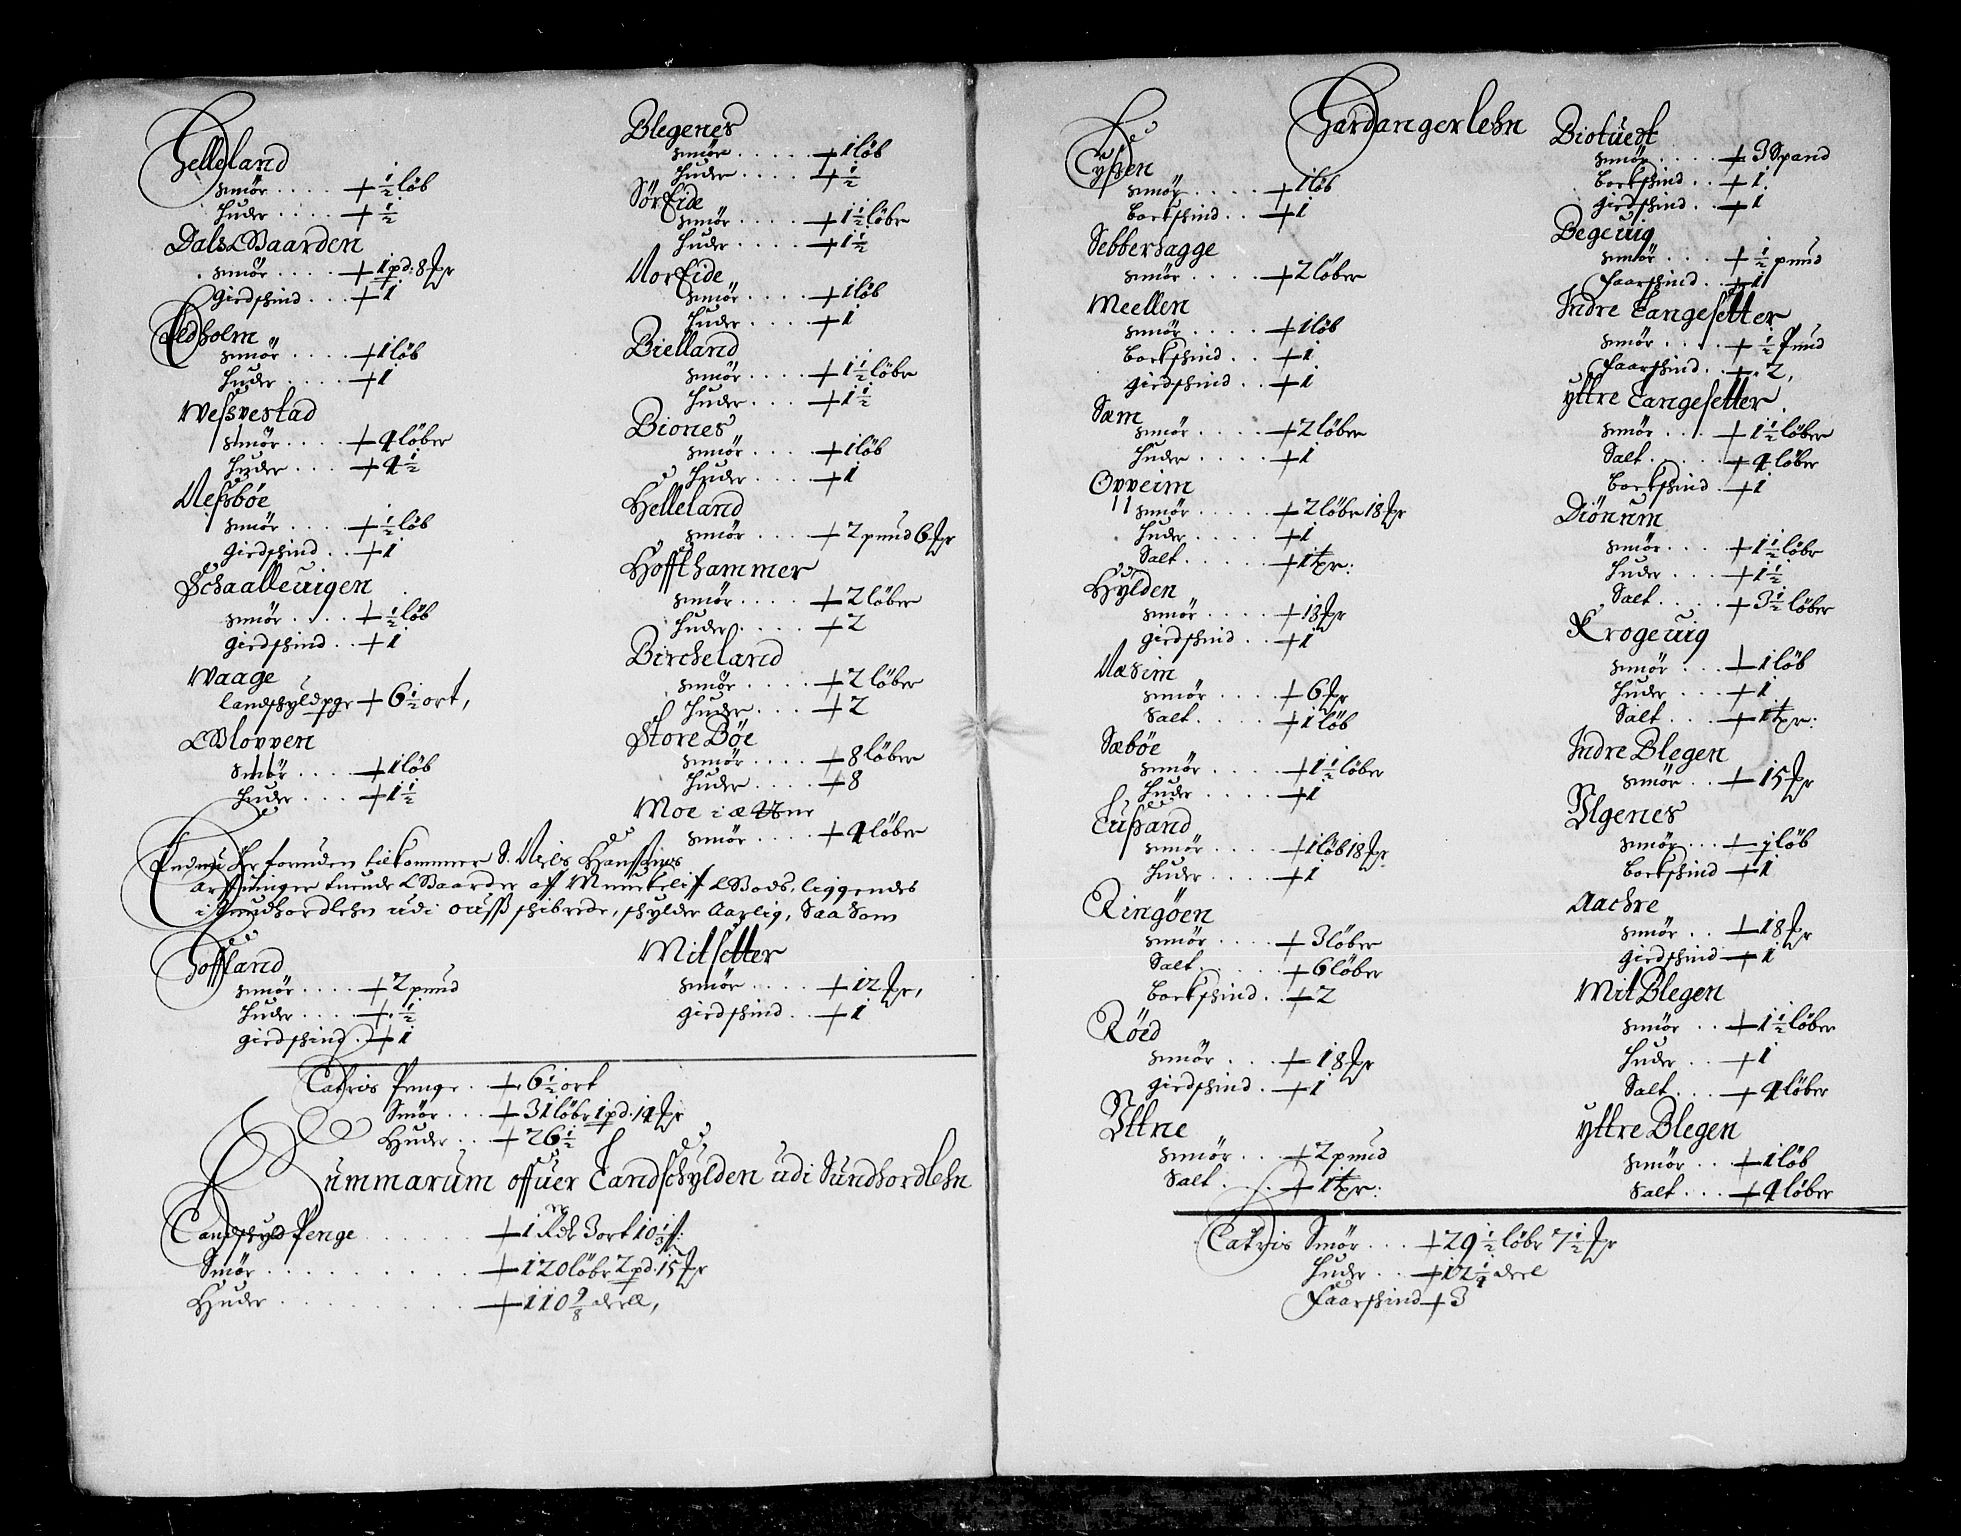 Helleland
Smör .... + ½ löb
Huder .... + ½
Dals Gaarden
Smör .... + 1 pd: 8 ŧŧr
Giedschind ... + 1
Eldholm
Smör .... + 1 löb
Huder .... + 1
Wessvestad
Smör .... + 4 löber
Huder ... + 4½
Nessböe
Smör .... + ½ löb
Giedschind .. + 1
Schaallevigen
Smör .... + ½ löb
Giedschind .. + 1
Waage
Landschyld pge + 6½ ort,
Glovven
Smör .... + 1 löb
Huder ... + 1½
Blegenes
Smör ..... + 1 löb
Huder .... + 1½
Sör Eide
Smör .... + 1½ löbr
Huder .... + 1½
Nor Eide
Smör .... + 1 löb
Huder .... + 1
Bielland
Smör .... + 1½ löbr
Huder .... + 1½
Biones
Smör .... + 1 löb
Huder .... + 1
Helleland
Smör .... + 2 pund 6 ŧŧr
Hoffthammer
Smör .... + 2 löber
Huder .... + 2
Bircheland
Smör .... + 2 löber
Huder .... + 2
Store Böe
Smör .... + 8 löber
Huder .... + 8
Moe i æ
Smör .... + 4 löber
Endnu Her foruden tilkommer S. Niels Hanssöns
arffuinger tuende Gaarder aff Munckeliff Gods, liggendes
i Sundhordlehn udi ouss schibrede, schylder Aarlig, Saa Som
Hoffland
Smör .... + 2 pund
Huder .... + ½
Giedschind . + 1
Mitsetter
Smör .... + 12 ŧŧr,
Giedschind .. + 1
Latris Penge .. + 6½ ort
Smör ... + 31 löbr 1 pd. 14 ŧŧr
Huder .. + 26½
Summarum offuer Landschylden udi Sundhordlehn
Landschyld Penge ...... + 1 Rdr 3 ort 10½ ſſ:
Smör ........ + 120 löbr 2 pd. 15 ŧŧr
Huder ........ + 110 9/8 deell,
Hardangerlehn
Lyssen
Smör .... + 1 löb
Bockschind .. + 1
Sebberhagge
Smör .... + 2 löber
Meellen
Smör .... + 1 löb
Bockschind .. + 1
Giedschind .. + 1
Sæm
Smör .... + 2 löber
Huder .... + 1
Opveim
Smör ..... + 2 löbr 18 ŧŧr
Huder ..... + 1
Salt ..... + 1 tpr:
Hylden
Smör .... + 18 ŧŧr
Giedschind .. + 1
Næsim
Smör .... + 6 ŧŧr
Salt ..... + 1 löb
Sæböe
Smör .... + 1½ löber
Huder .... + 1
Lussand
Smör .... + 1 löb 18 ŧŧr
Huder .... + 1
Ringöen
Smör .... + 3 löber
Salt ..... + 6 löber
Bockschind .. + 2
Röed
Smör ... + 18 ŧŧr
Giedschind . + 1
Yttne
Smör ... + 2 pund
Salt .... + 1 tpr:
Biotuedt
Smör .... + 3 Spand
Bockschind .. + 1
Giedschind .. + 1
Degevig
Smör ... + ½ pund
Faarschind . + 1
Indre Langesetter
Smör .... + ½ Pund
Faarschind . + 2,
Yttre Langesetter
Smör ... + 1½ löber
Salt .... + 4 löber
Bockschind . + 1
Diönum
Smör .... + 1½ löbr
Huder ... + 1½
Salt .... + 3½ löber
Krogevig
Smör ... + 1 löb
Huder ... + 1
Salt ... + 1 tpr:
Indre Blegen
Smör .. + 15 ŧŧr
Ylgenes
Smör ... + 1 löb
Bockschind + 1
Aachre
Smör .. + 18 ŧŧr
Giedschind + 1
Mit Blegen
Smör .. + 1½ löber
Huder .. + 1
Salt ... + 4 löber
Yttre Blegen
Smör .. + 1 löb
Salt ... + 4 löber
Latris Smör ... + 29½ löbr 7½ ŧŧr
Huder .. + 12¼ deel
Faarschind + 3